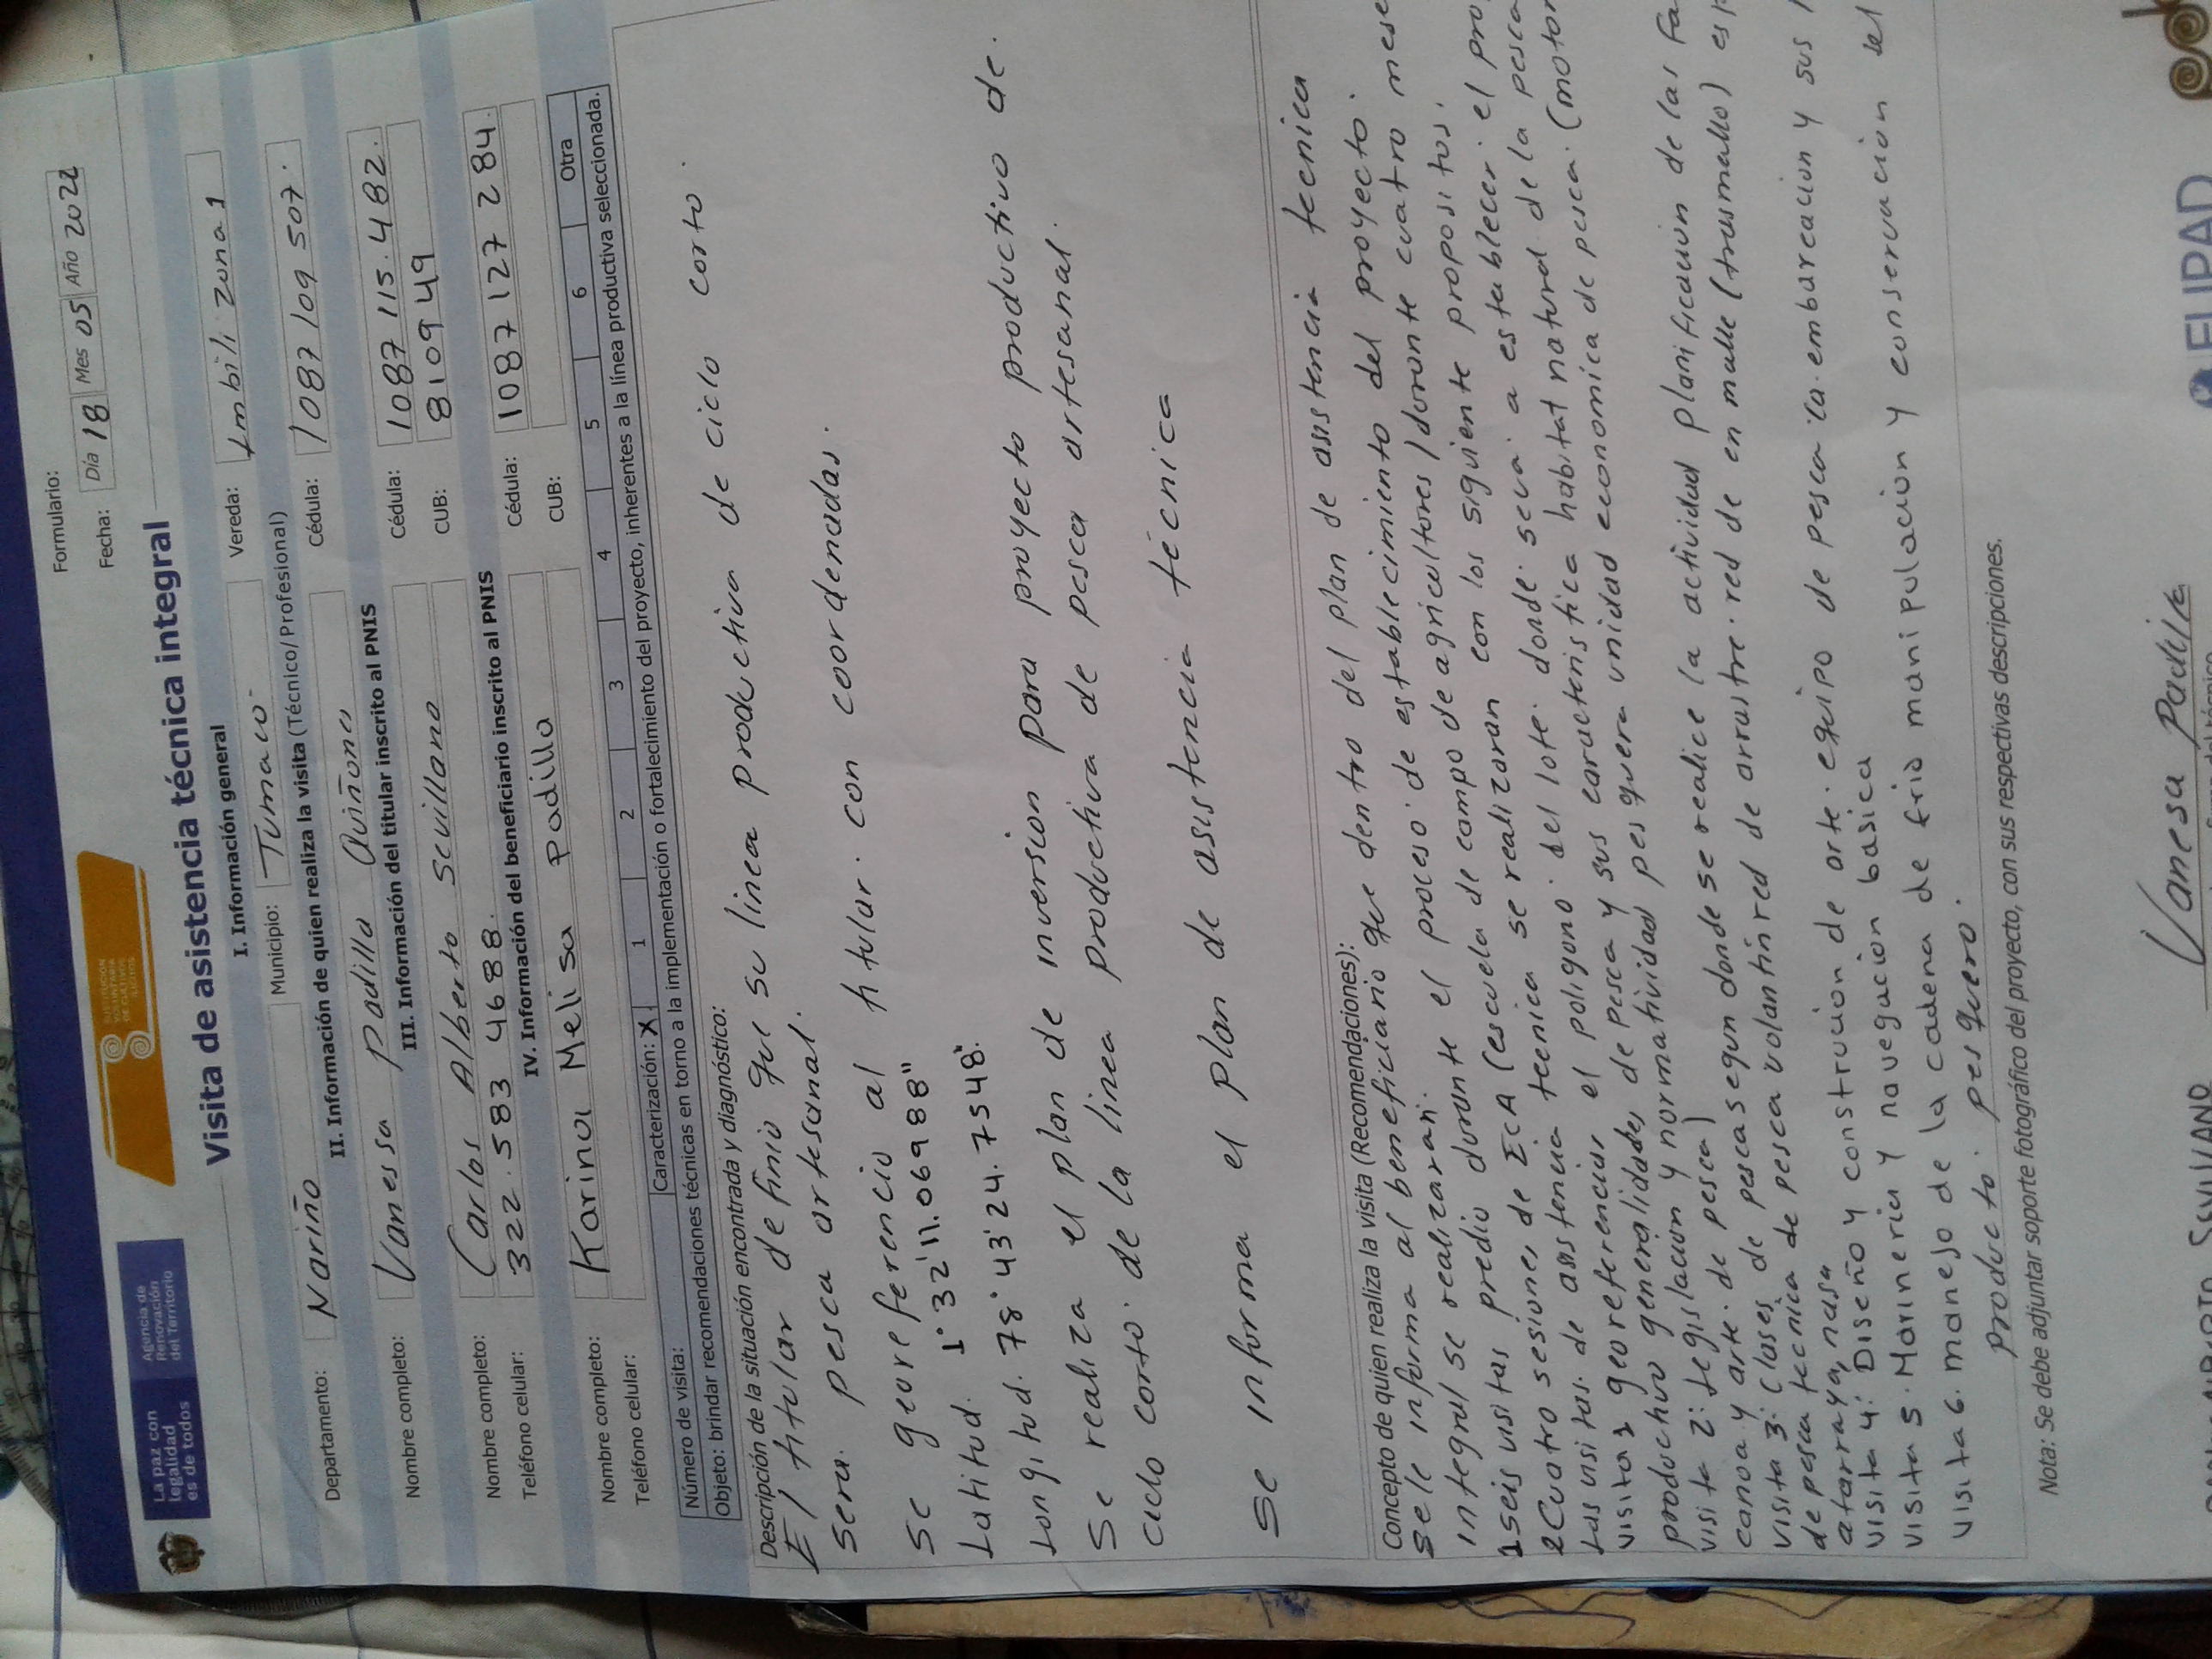 La paz con
legalidad
es de todos
Agencia de
Renovación
del Territorio
SUSTITUCIÓN
VOLUNTARIA
DE CULTIVOS
ILÍCITOS
Formulario:
Fecha: Día 18 Mes 05 Año 2022
Visita de asistencia técnica integral
I. Información general
Departamento: Nariño Municipio: Tumaco. Vereda: Imbili zona 1
II. Información de quien realiza la visita (Técnico/Profesional)
Nombre completo: Vanessa Padilla Quiñones Cédula: 1087 109 507.
III. Información del titular inscrito al PNIS
Nombre completo: Carlos Alberto Sevillano Cédula: 1087 115. 482.
Teléfono celular: 322. 583 4688. CUB: 8109 49
IV. Información del beneficiario inscrito al PNIS
Nombre completo: Karina Melisa Padilla Cédula: 1087 127 284.
Teléfono celular: CUB:
Número de visita: Caracterización: X 1 2 3 4 5 6 Otra
Objeto: brindar recomendaciones técnicas en torno a la implementación o fortalecimiento del proyecto, inherentes a la línea productiva seleccionada.
Descripción de la situación encontrada y diagnóstico:
El titular definio que su linea productiva de ciclo corto.
sera pesca artesanal.
se georeferencio al titular. con coordenadas.
Latitud. 1° 32' 11.06988"
Longitud. 78° 43' 24.7548".
Se realiza el plan de inversion para proyecto productivo de.
ciclo corto. de la linea productiva de pesca artesanal.
se informa el plan de asistencia técnica
Concepto de quien realiza la visita (Recomendaciones):
se le informa al beneficiario que dentro del plan de asistencia tecnica
integral se realizaran. el proceso de establecimiento del proyecto.
1 seis visitas predio durante el
2 Cuatro sesiones de ECA (escuela de campo de agricultores) durante cuatro mese
Las visitas. de asistencia tecnica se realizaran con los siguiente propositos.
visita 1 georeferenciar el poligono. del lote. donde sera a establecer. el pro
productivo generalidades de pesca y sus caracteristica habitat natural de la pesca
visita 2: Legislacion y normatividad pesquera unidad economica de pesca. (motor
canoa y arte. de pesca)
visita 3: Clases de pesca segun donde se realice la actividad planificacion de las Fa
de pesca tecnica de pesca volantin red de arrastre. red de en malle (trasmallo) es
atarraya, nasa
visita 4: Diseño y construcion de arte. equipo de pesca la. embarcacion y sus
visita 5. Marineria y navegacion basica
visita 6. manejo de la cadena de frio manipulacion y conservacion del
producto. pesquero.
Nota: Se debe adjuntar soporte fotográfico del proyecto, con sus respectivas descripciones.
Vanesa Padilla